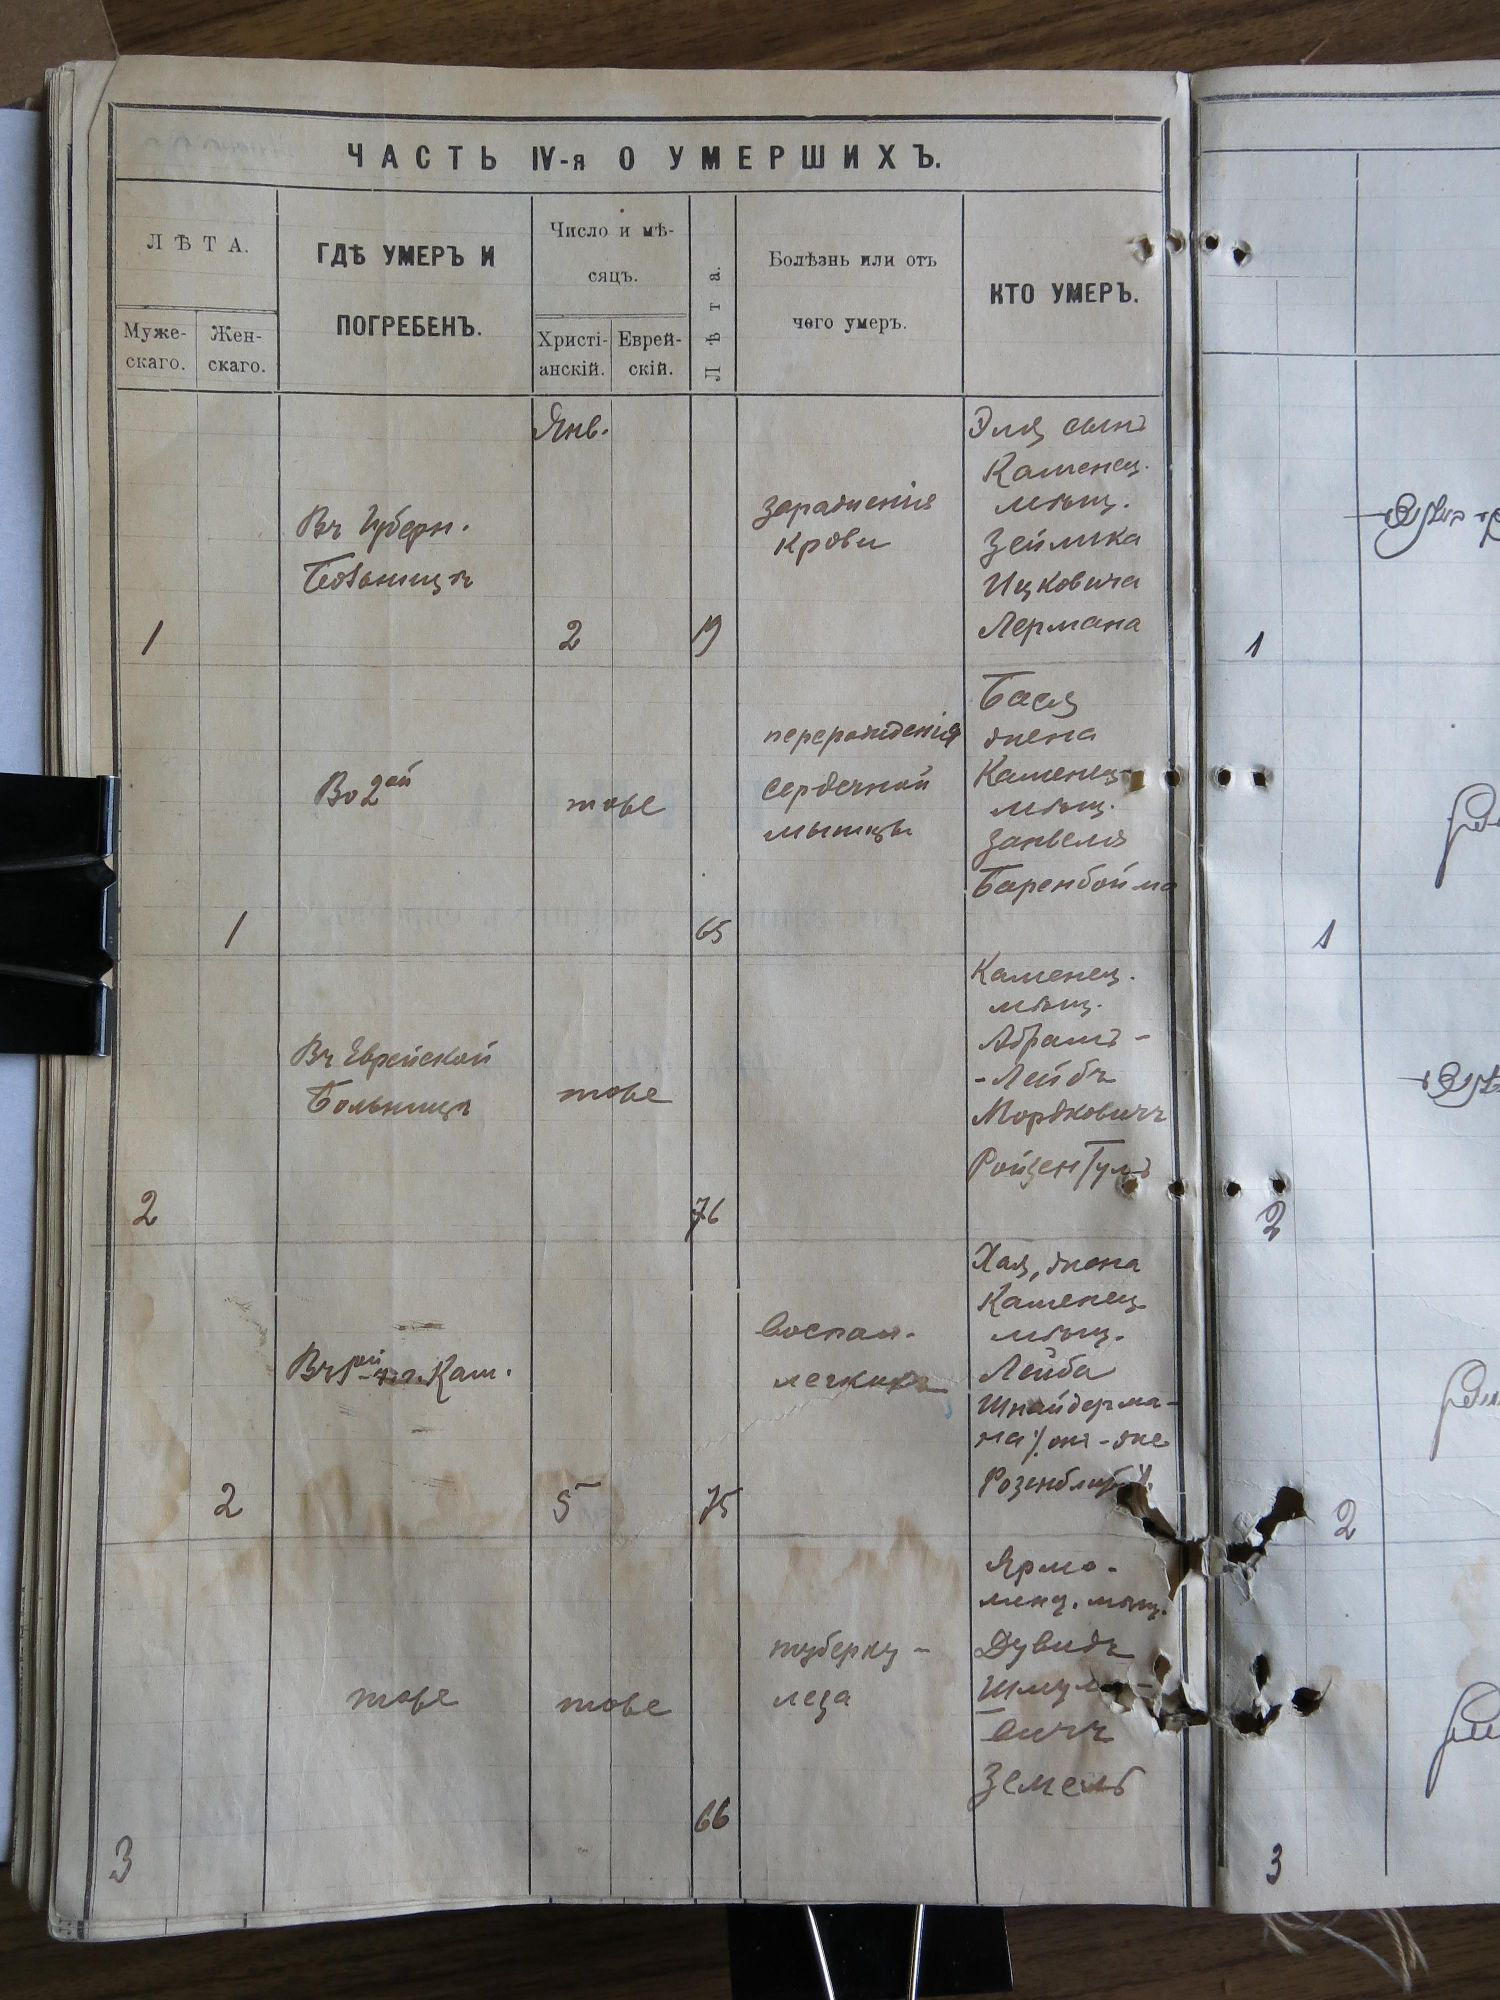 ЧАСТЬ IV-я О УМЕРШИХЪ.
ЛѢТА.
Муже-
скаго.
Жен-
скаго.
ГДѢ УМЕРЪ И
ПОГРЕБЕНЪ.
Число и мѣ-
сяцъ.
Христі-
анскій.
Еврей-
скій.
Лѣта.
Болѣзнь или отъ
чего умеръ.
КТО УМЕРЪ.
Янв.
Въ Губерн.
Больницѣ
1
2
19
зараженія
крови
Эля сынъ
Каменец.
мѣщ.
Зейлика
Ицковича
Лермана
1
Во 2ой
тоже
1
65
перерожденія
сердечной
мышцы
Бася
жена
Каменец.
мѣщ.
Занвеля
Баренбойма
1
Въ Еврейской
Больницѣ
тоже
2
76
Каменец.
мѣщ.
Абрамъ-
-Лейбъ
Мордковичъ
Ройзентулъ
2
Кам.
2
5
75
воспал.
легкихъ
Хая, жена
Каменец
мѣщ.
Лейба
Шнайдерма-
на /она-же
2
тоже
тоже
3
66
туберку-
леза
Ярмо-
линц. мѣщ.
Дувидъ
Шмуле-
вичъ
Земель
3